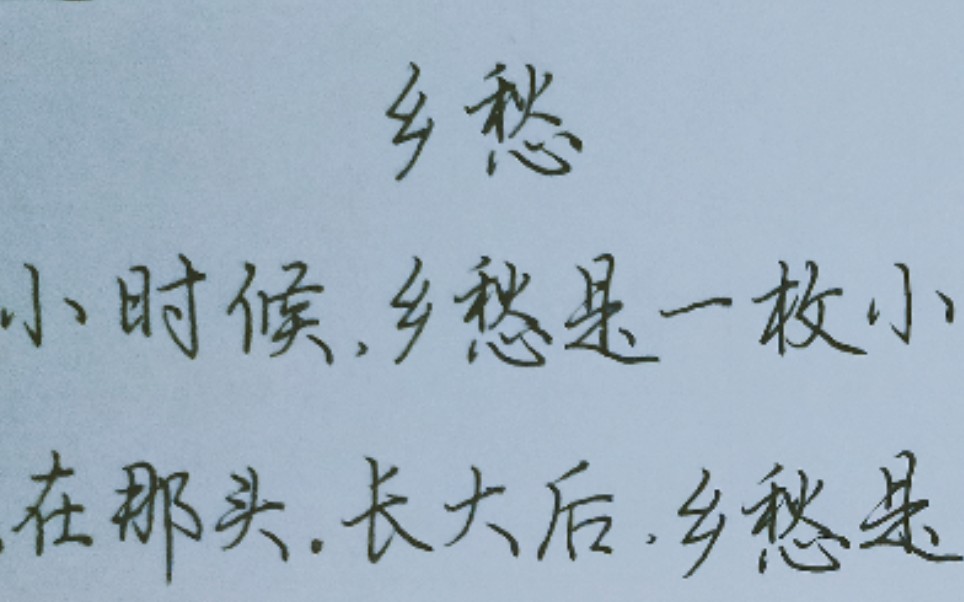 乡愁
小时候,乡愁是一枚小
在那头.长大后,乡愁是